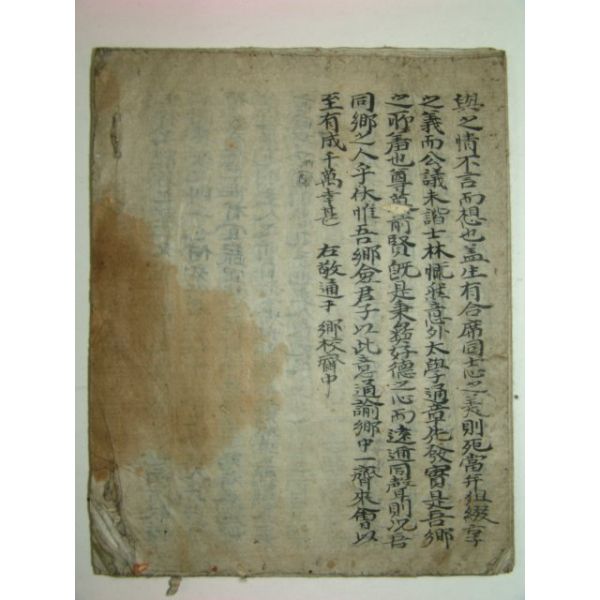 與之情不言而想也盖生有合席同志之義則死當并俎綴享
之義而公議未諧士林慨然意外太學通章先發實是吾鄉
之所羞也尊慕前賢旣是秉彛好德之心而遠近同聲則況吾
同鄉之人乎伏惟吾鄉僉君子以此意通諭鄉中一齊來會以
至有成千萬幸甚 右敬通于 鄉校齋中